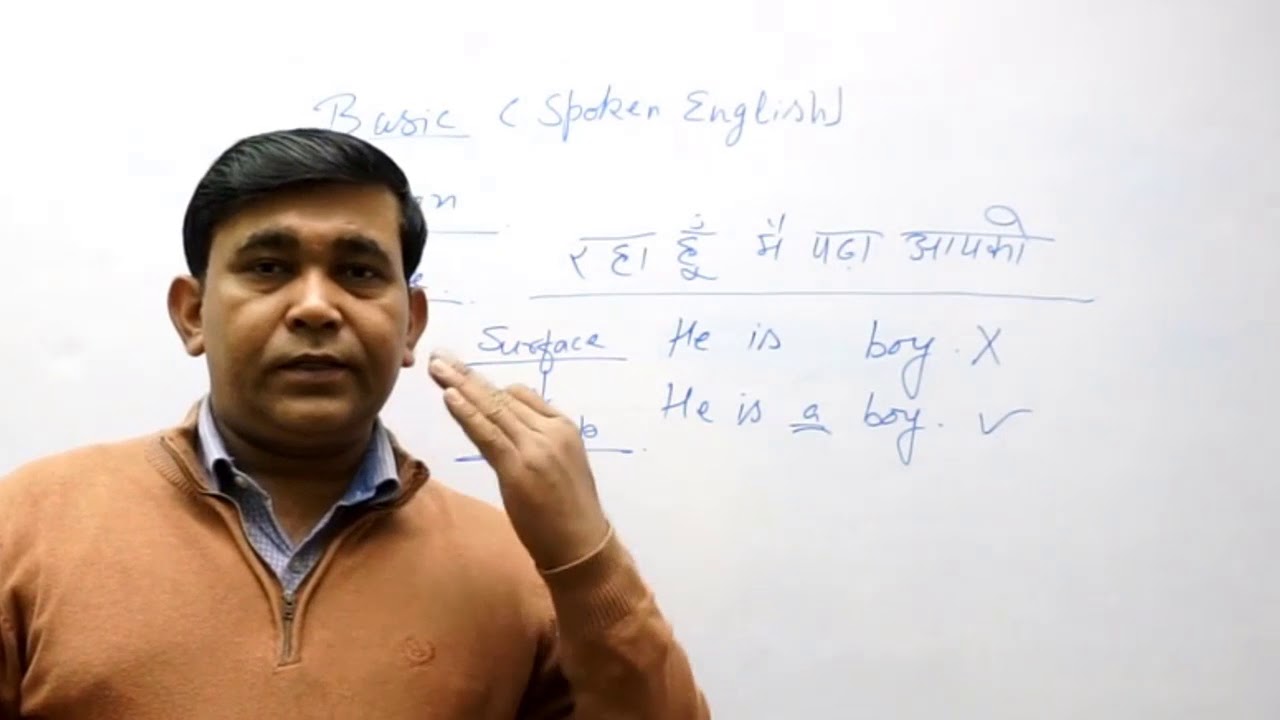 Basic (Spoken English)
रहा हूँ मैं पढ़ा आपको
Surface He is boy. X
He is a boy. ✓